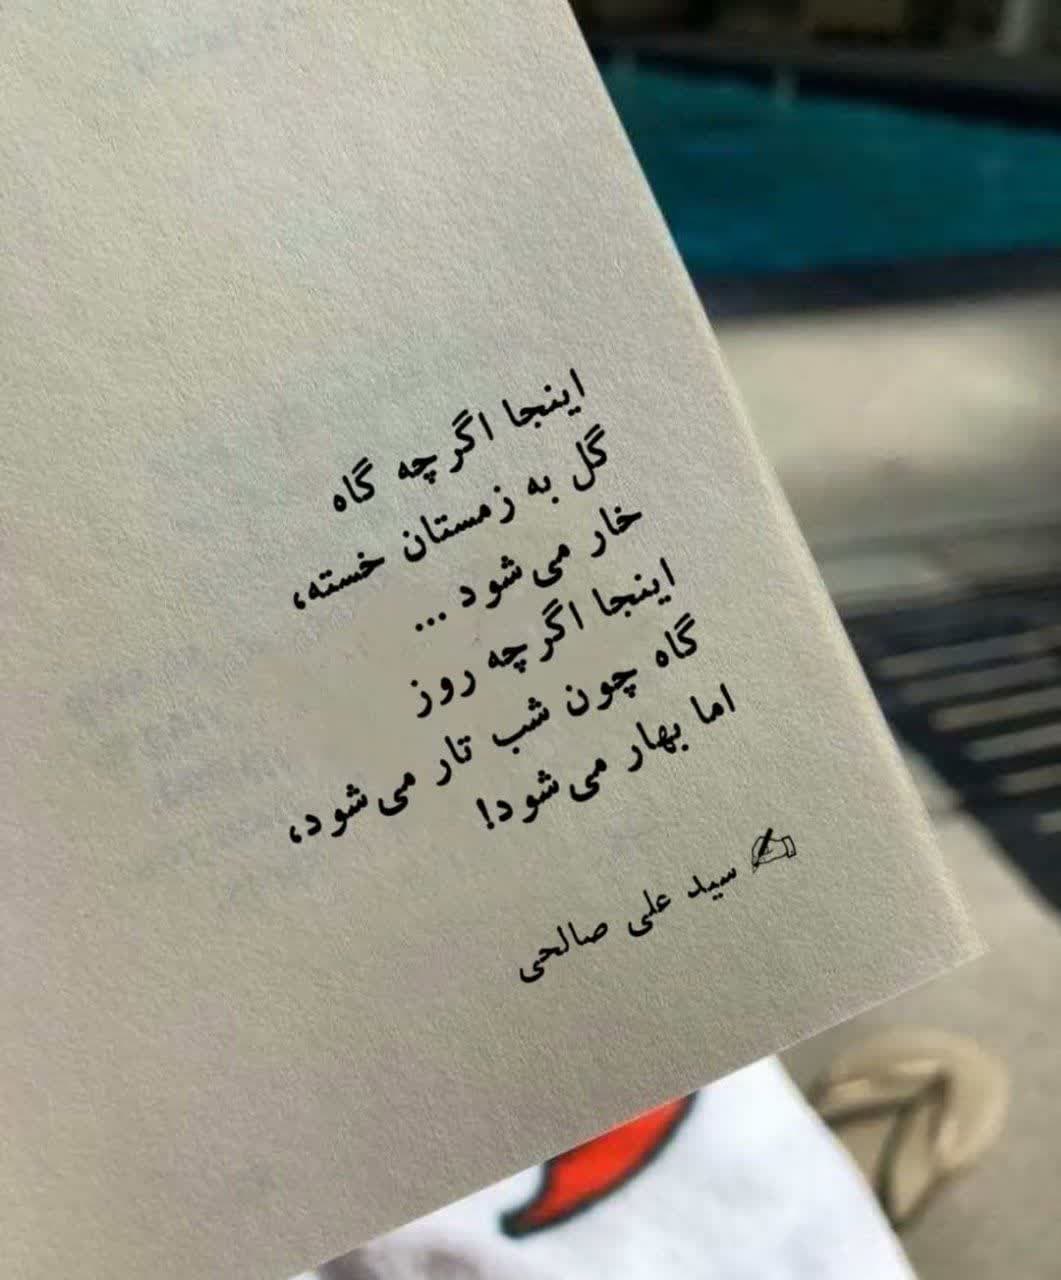 اینجا اگرچه گاه
گل به زمستان خسته،
خار می‌شود ...
اینجا اگرچه روز
گاه چون شب تار می‌شود،
اما بهار می‌شود!
✍ سید علی صالحی